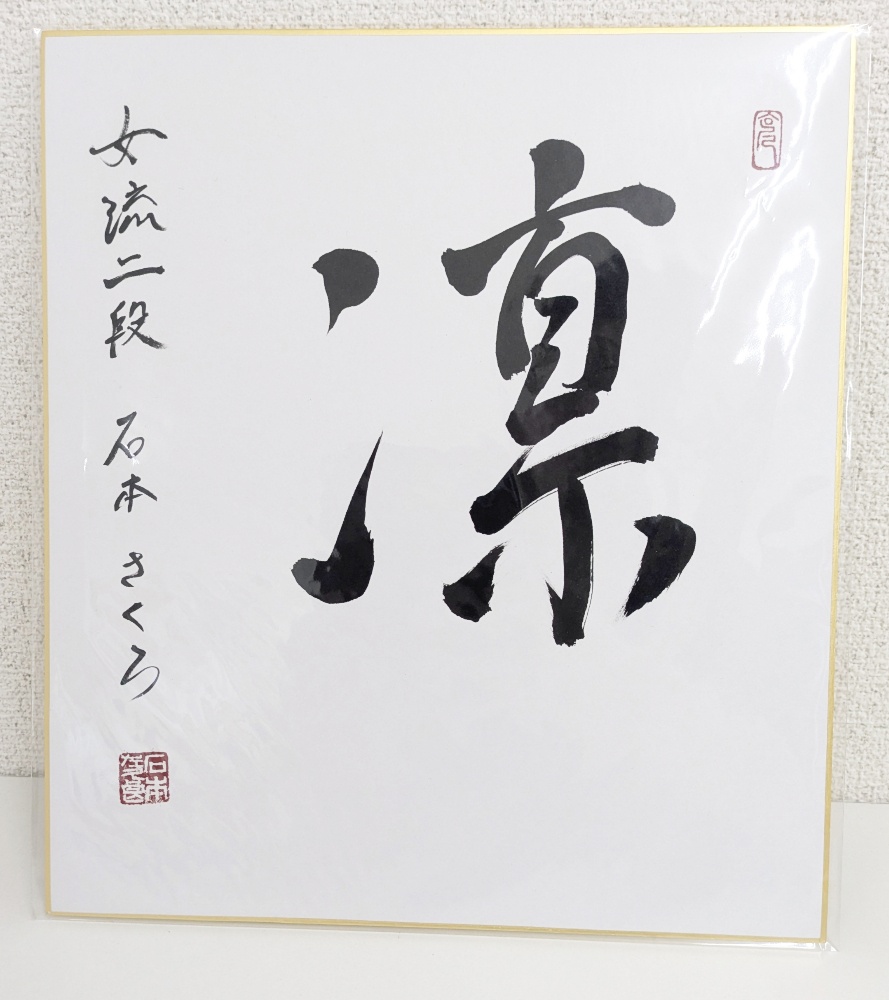 凛
女流二段 石本さくら
石本